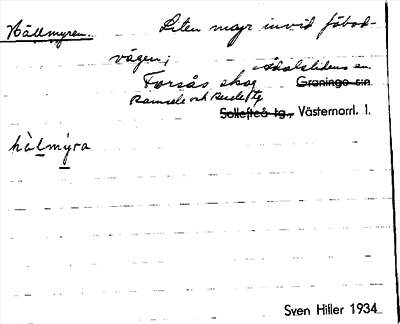 Hällmyren.. Liten myr invid fäbod-
vägen;
Ådalslidens sn.
Forsås skog Graninge s:n
Ramsele och Resele tg
Sollefteå tg., Västernorrl. l.
hàlmýra
Sven Hiller 1934